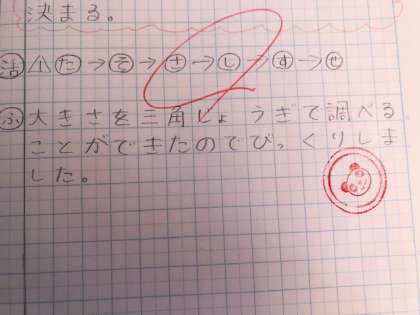 決まる。
活 ム た→そ→さ→し→す→せ
ふ 大きさを三角じょうぎで調べる
ことができたのでびっくりしま
した。